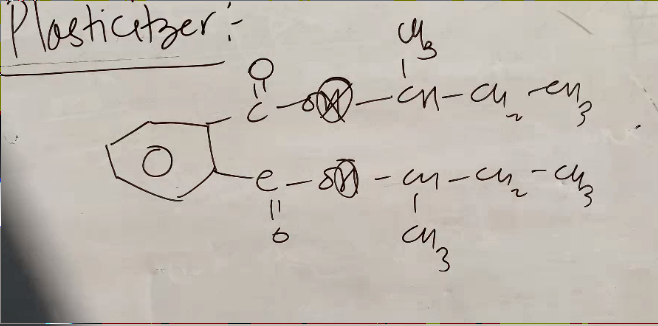 Plasticitzer :-
CH3
O
C - O - CH - CH2 - CH3
C - O - CH - CH2 - CH3
O
CH3